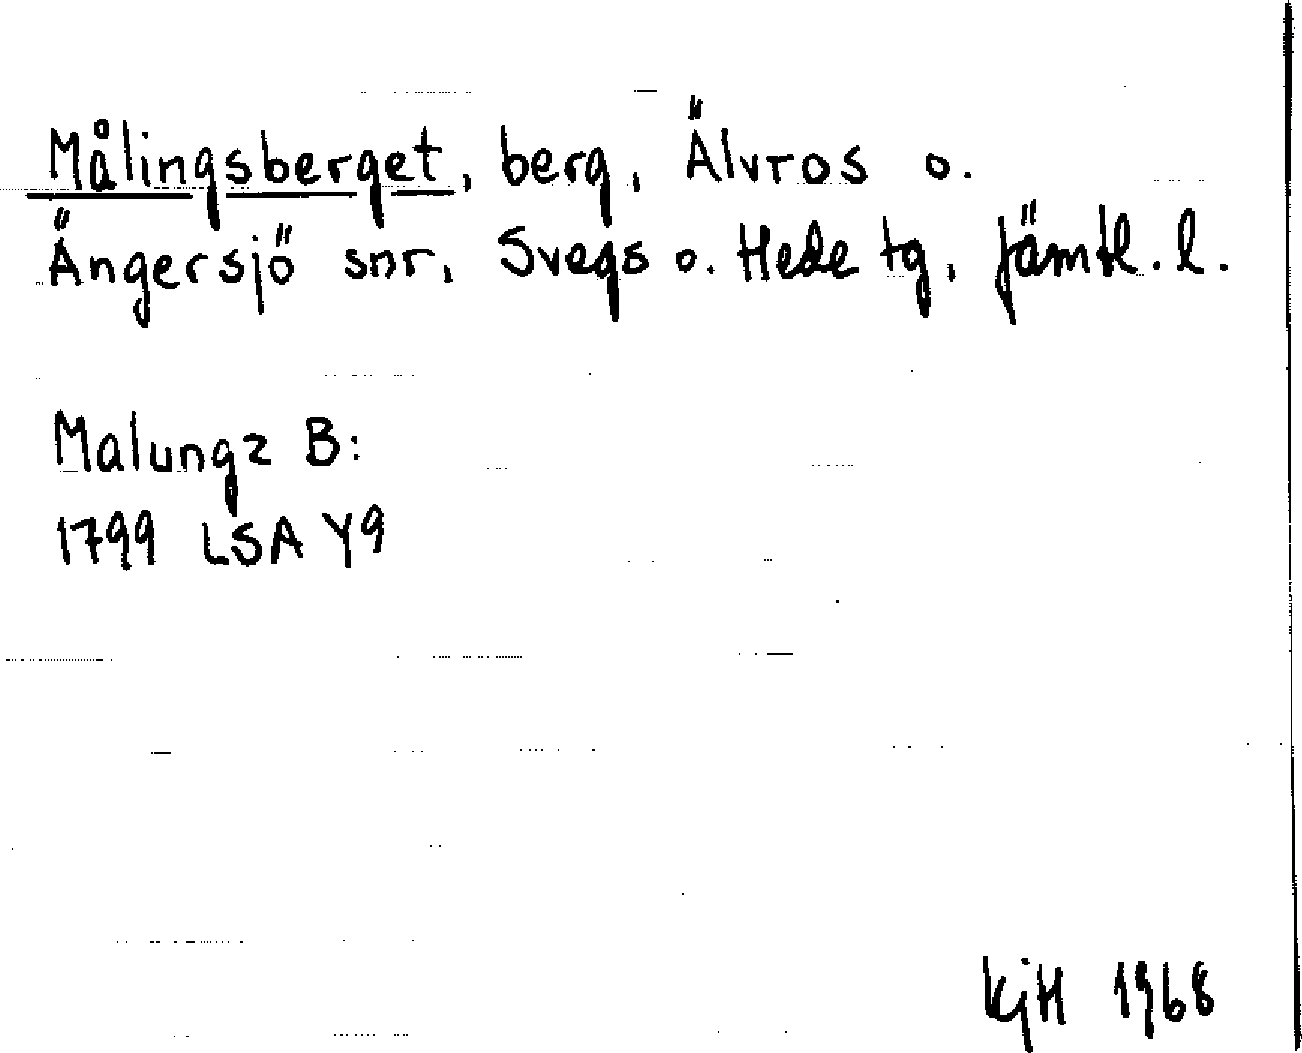 Målingsberget, berg, Älvros o.
Ängersjö snr, Svegs o. Hede tg, Jämtl. l.
Malungz B:
1799 LSA Y9
KjH 1968